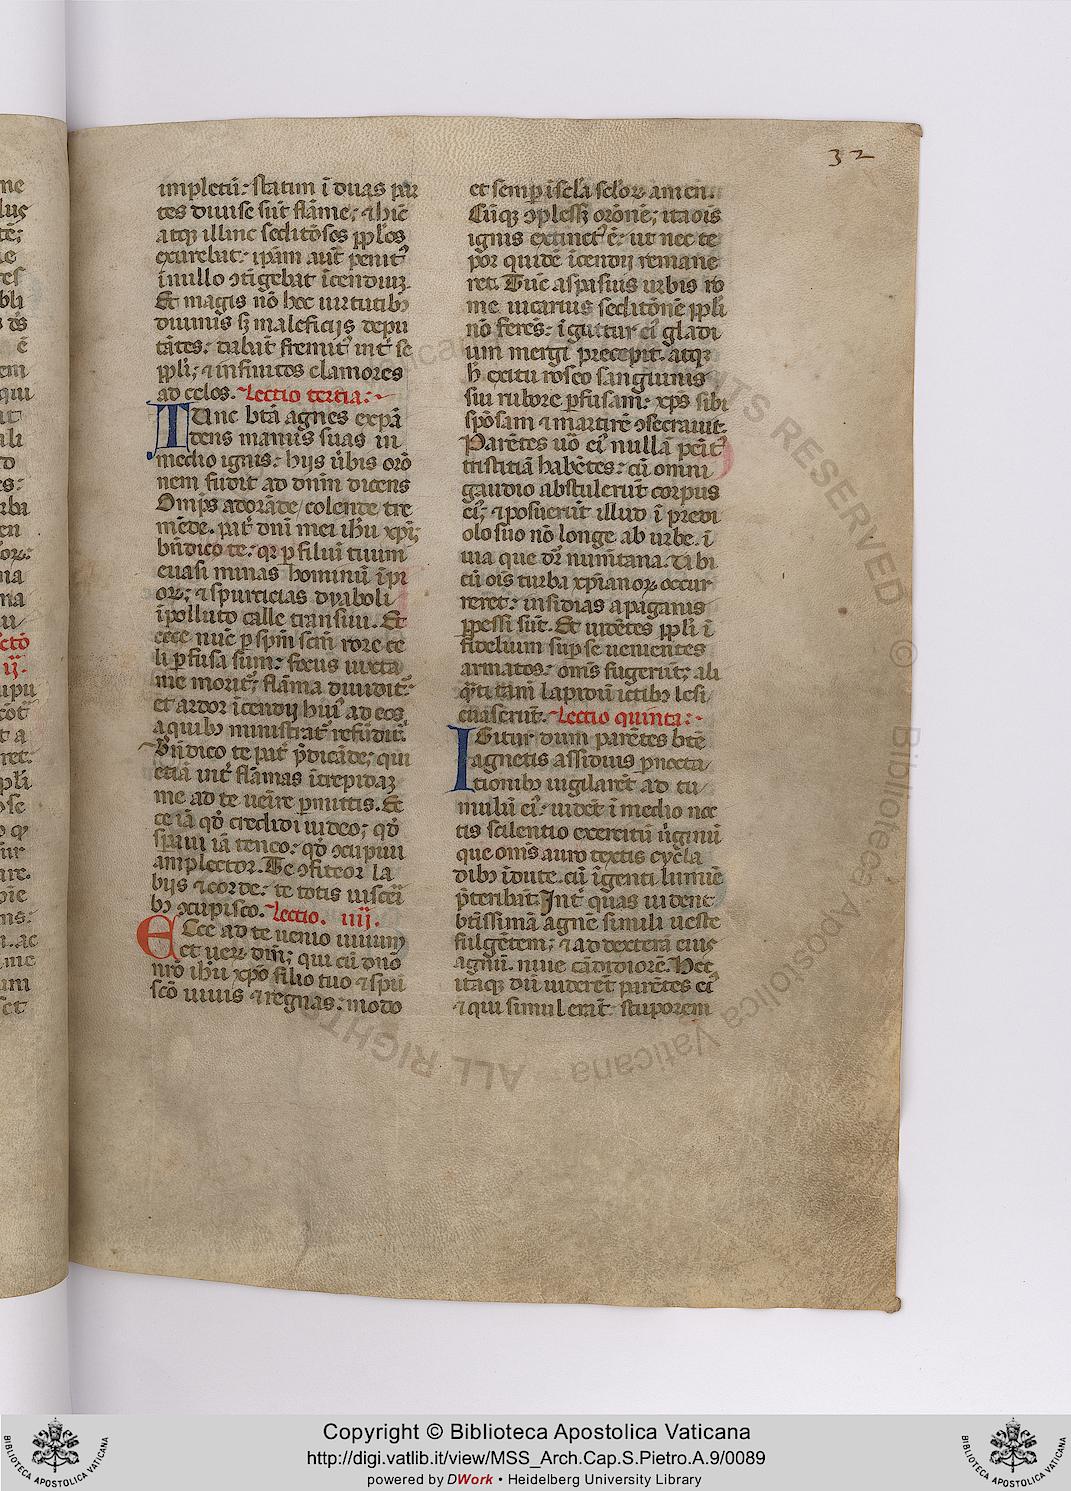 32
impletū: statim ī duas par
tes diuise sūt flāme; ⁊ hīc
atq illinc seditōsos ppl̄os
exurebat: ipām aut̄ penit᷒
ī nullo ↄtīgebat īcendiuꝫ.
Et magis nō hec uirtutibꝫ
diuinis sꝫ maleficijs depu
tātes: dabāt fremit᷒ int̄ se
ppl̄i; ⁊ infinitos clamores
ad celos. Lectio tertia:
TUnc btā agnes expā
dens manus suas in
medio ignis: hijs ūbis orō
nem fudit ad dnm̄ dicens
Omīps adorāde colende tre
mēde. pat̄ dn̄i mei ih̄u xp̄i;
bn̄dico te: qꝛ ꝑ filiū tuum
euasi minas hominū īpi
oꝝ; ⁊ spurticias dyaboli
īpolluto calle transiui. Et
ecce nūc ꝑ spm̄ scm̄ rore ce
li ꝑfusa sum: focus iuxta
me morit᷒; flāma diuidit᷒:
et ardor īcendij hui᷒ ad eos
a quibꝫ ministrat᷒ refūdit᷒
Bn̄dico te pat̄ p̄dicāde; qui
etiā int̄ flāmas ītrepidaꝫ
me ad te uēire ꝑmittis. Ec
ce iā qđ credidi uideo; qđ
spaui iā teneo: qđ ↄcupiui
amplector. Te ↄfiteor la
bijs ⁊ corde: te totis uisceī
bꝫ ↄcupisco. Lectio. iiij.
ECce ad te uenio uiuum
et ueꝝ dm̄; qui cū dn̄o
nr̄o ih̄u xp̄o filio tuo ⁊ spū
scō uiuis ⁊ regnas: modo
et semp ī scl̄a scl̄oꝝ amen.
Cūqꝫ ↄplesset orōnē; ita ois
ignis extinct᷒ ē: ut nec te
por quidē īcendij remane
ret. Tūc aspasius urbis ro
me uicarius seditōnē ppl̄i
nō ferēs: ī guttur ei᷒ gladi
um mergi precepit. atqꝫ
h̄ exitu roseo sanguinis
sui rubore ꝑfusam: xp̄s sibi
spōsam ⁊ martirē ↄsecrauit.
Parētes uō ei᷒ nullā penit᷒
tristitiā habētes: cū omni
gaudio abstulerūt corpus
ei᷒; ⁊ posuerūt illud ī predi
olo suo nō longe ab urbe. ī
uia que dr̄ numītana. Ubi
cū ois turba xp̄ianoꝝ occur
reret: insidias a paganis
ppessi sūt. Et uidētes ppl̄i ī
fidelium sup se uenientes
armatos: omīs fugerūt; ali
qn̄ti tam̄ lapidū ictibꝫ lesi
euaserūt. Lectio quinta:
IGitur dum parētes btē
agnetis assiduis pnocta
tionibꝫ uigilarēt ad tu
mulū ei᷒: uidēt ī medio noc
tis scilentio exercitū ūginū
que omīs auro textis cycla
dibꝫ īdute. cū īgenti lumīe
p̄teribāt. Int̄ quas uident
btīssimā agnē simili ueste
fulgētem; ⁊ ad dexterā eius
agnū. niue cādidiorē. Hec
itaqꝫ dū uiderēt parētes ei᷒
⁊ qui simul erāt: stuporem
Copyright © Biblioteca Apostolica Vaticana
http://digi.vatlib.it/view/MSS_Arch.Cap.S.Pietro.A.9/0089
powered by DWork • Heidelberg University Library